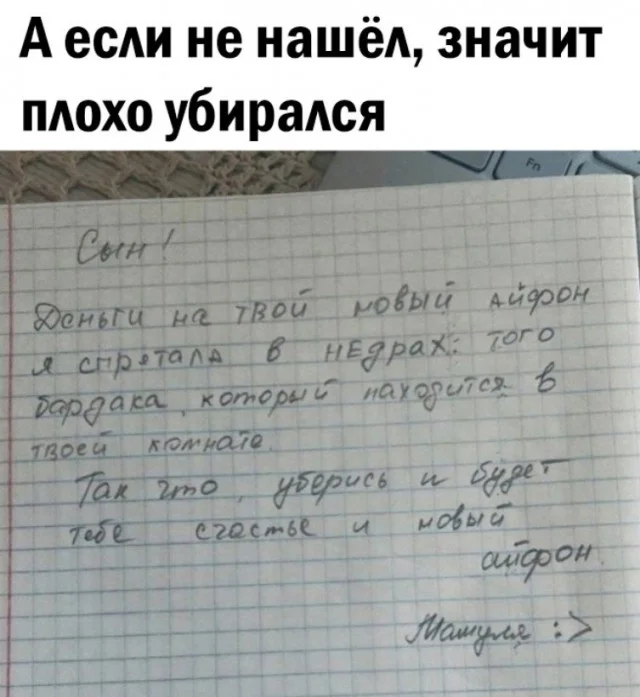 А если не нашёл, значит
плохо убирался
Fn
Сын!
Деньги на твой новый айфон
я спрятала в недрах: того
бардака, который находится в
твоей комнате.
Так что, уберись и будет
тебе счастье и новый
айфон.
Мамуля :>